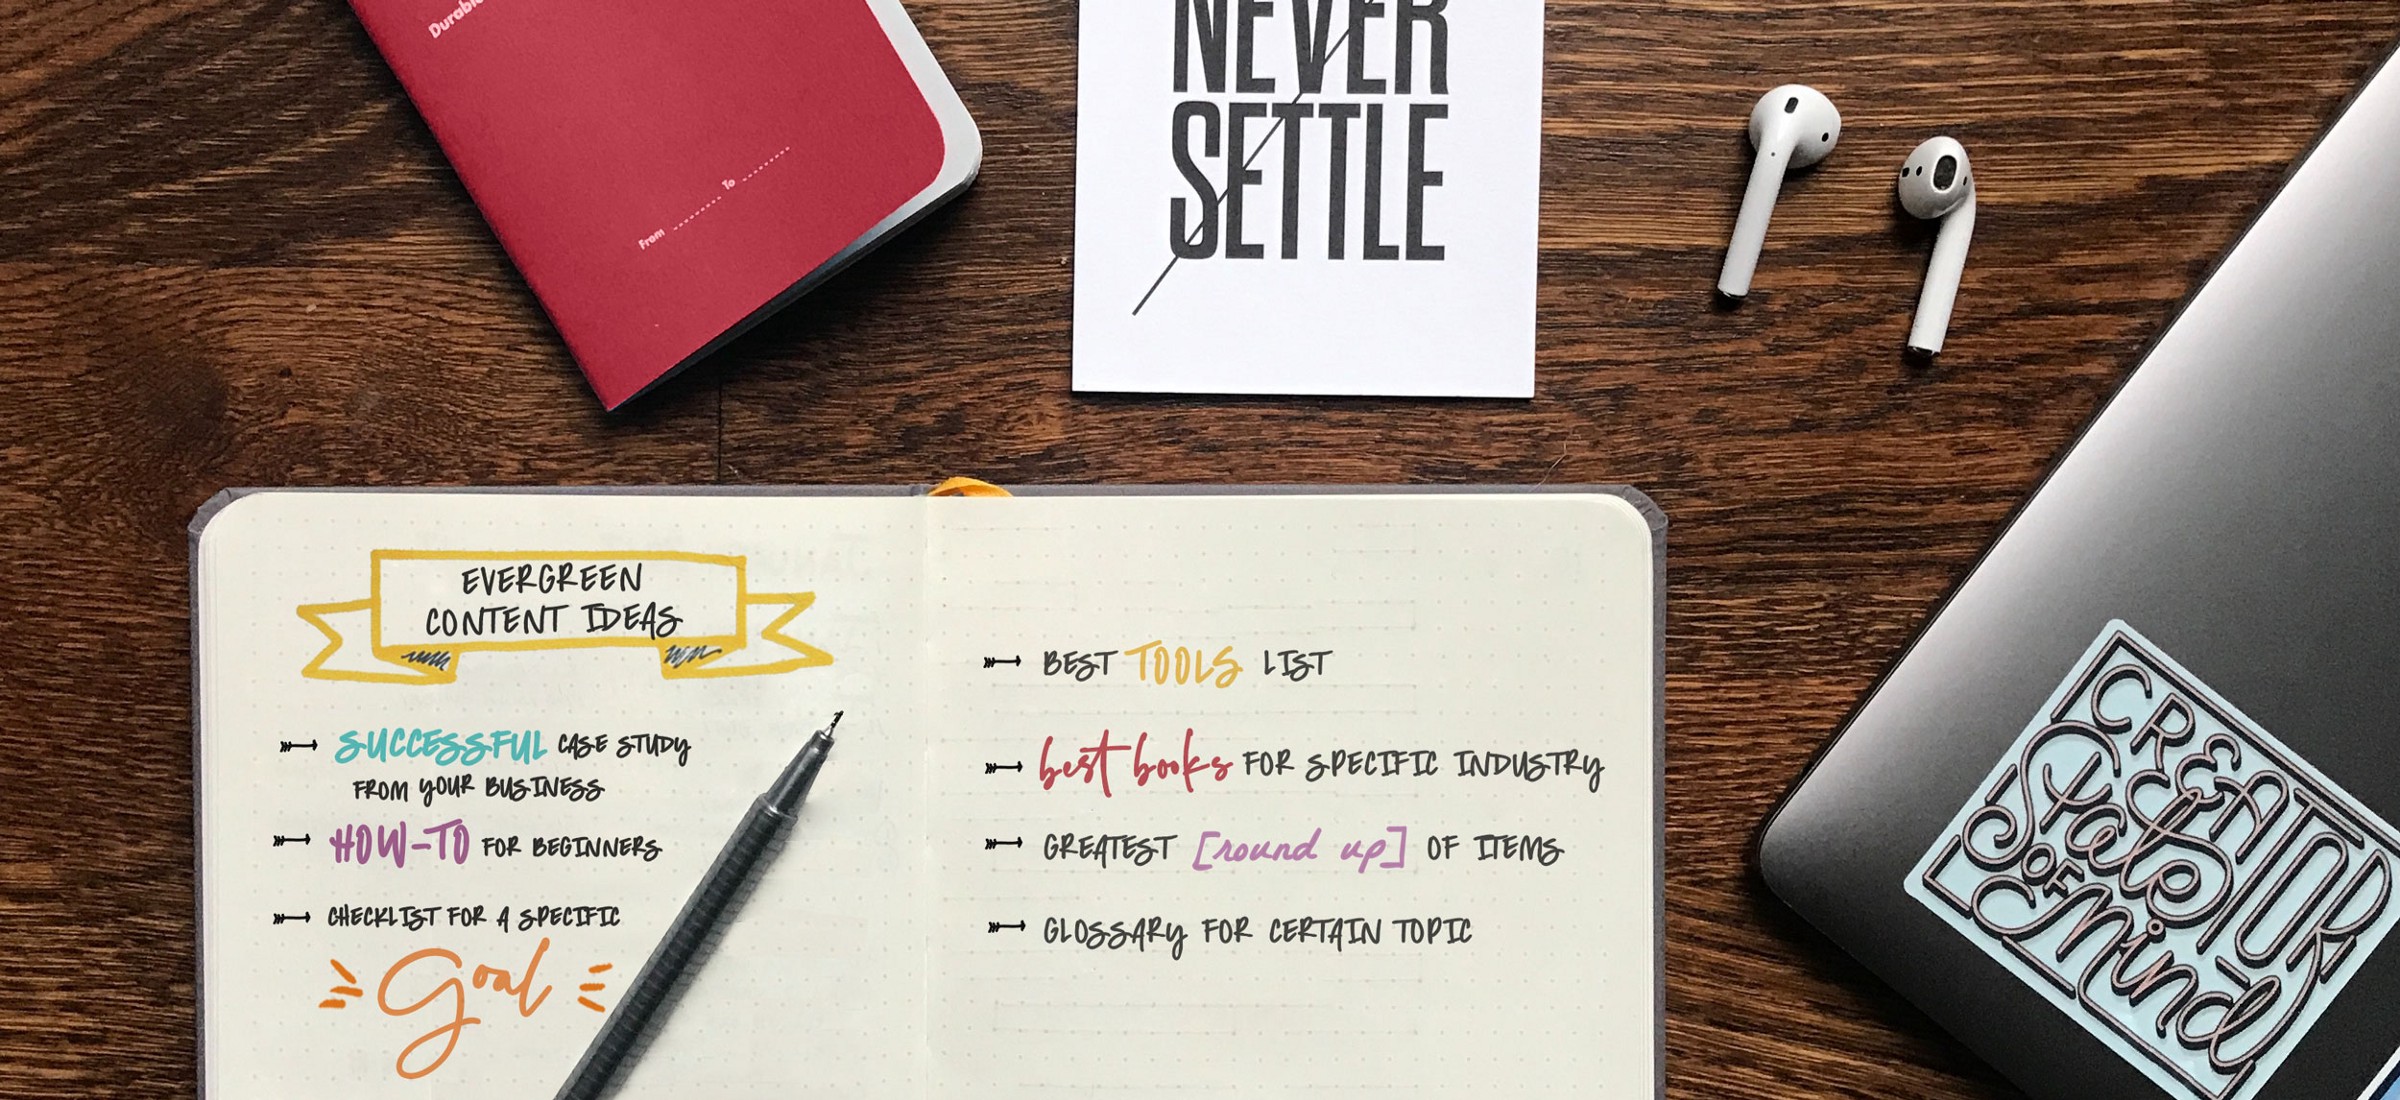 Durable
From To
NEVER
SETTLE
EVERGREEN
CONTENT IDEAS
SUCCESSFUL CASE STUDY
FROM YOUR BUSINESS
HOW-TO FOR BEGINNERS
CHECKLIST FOR A SPECIFIC
goal
BEST TOOLS LIST
best books FOR SPECIFIC INDUSTRY
GREATEST [round up] OF ITEMS
GLOSSARY FOR CERTAIN TOPIC
CREATOR
State
OF
Mind